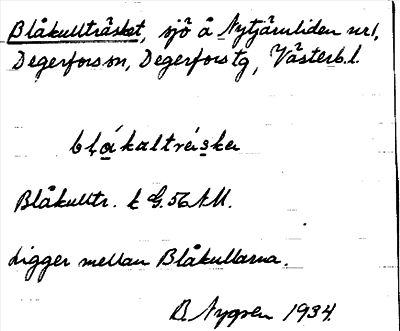 Blåkullträsket, sjö å Nytjärnliden nr 1,
Degerfors sn, Degerfors tg, Västerb.l.
blákaltréske
Blåkulltr. k G.56 AM.
Ligger mellan Blåkullarna.
B. Nygren 1934.